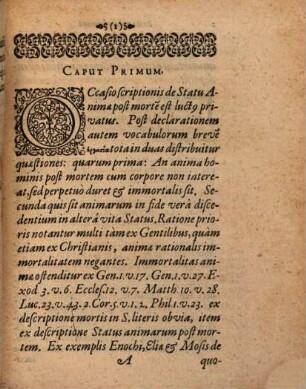 5(1)5
CAPUT PRIMUM,
OCcasio scriptionis de Statu A-
nimæ post mortē est luctꝰ pri-
vatus. Post declarationem
autem vocabulorum brevē
tota in duas distribuitur
quæstiones: quarum prima: An anima ho-
minis post mortem cum corpore non inter e-
at, sed perpetuò duret & immortalis sit, Se-
cunda quis sit animarum in fide verâ disce-
dentium in alterâ vita Status, Ratione prio-
ris notantur multi tàm ex Gentilibus, quàm
etiam ex Christianis, animæ rationalis im-
mortalitatem negantes. Immortalitas ani-
mæ ostenditur ex Gen. 1. v. 17. Gen. 1. v. 27. E-
xod 3. v. 6. Ecclesi. 12. v. 7. Matth 10. v. 28.
Luc. 23. v. 43. 2. Cor. 5. v. 1. 2. Phil 1. v. 23. ex
descriptione mortis in S. literis obviæ, item
ex descriptione Status animarum post mor-
tem. Ex exemplis Enochi, Eliæ & Mosis de
A quo-